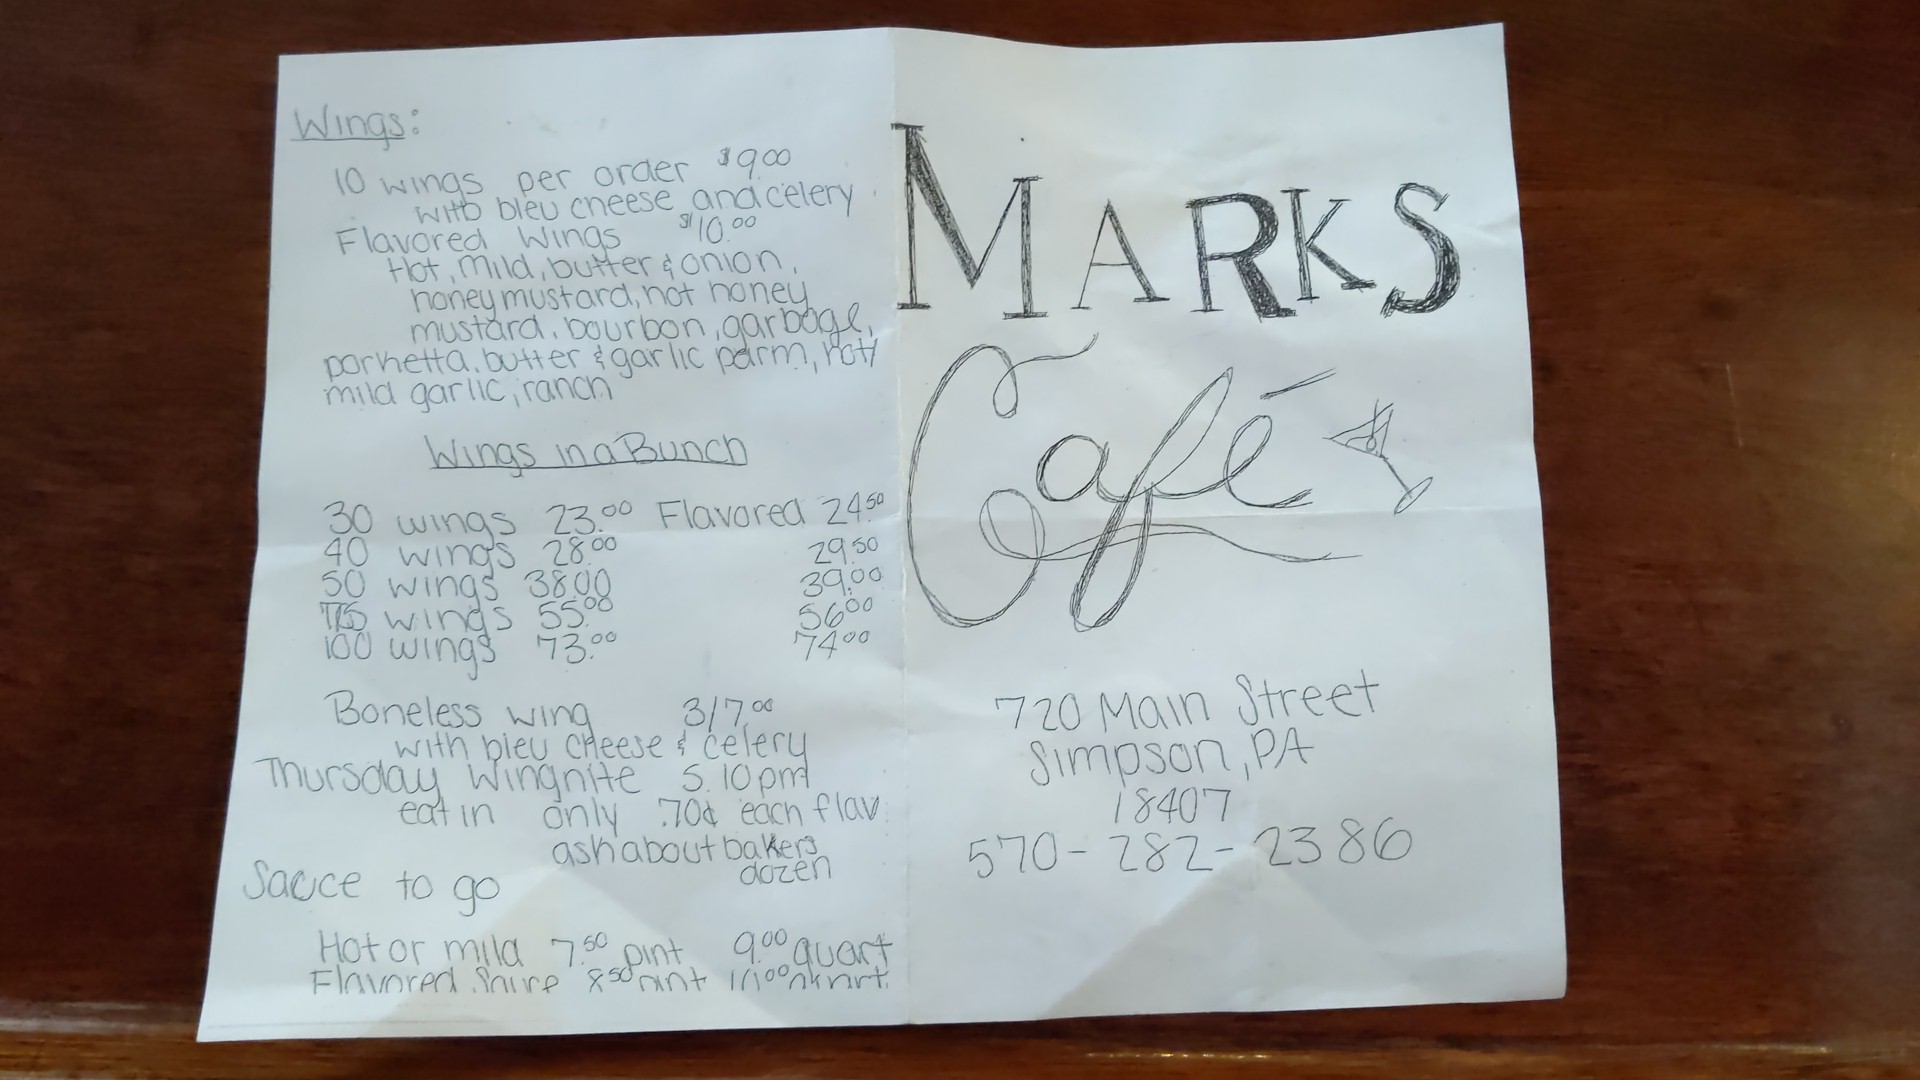 Wings:
10 wings per order $9.00
with bleu cheese and celery
Flavored Wings $10.00
Hot, Mild, butter & onion,
honey mustard, hot honey
mustard, bourbon, garbage,
porhetta, butter & garlic parm, hot/
mild garlic, ranch
Wings in a Bunch
30 wings 23.00 Flavored 24.50
40 wings 28.00 29.50
50 wings 38.00 39.00
75 wings 55.00 56.00
100 wings 73.00 74.00
Boneless wing 3/7.00
with bleu cheese & celery
Thursday Wingnite 5.10pm
eat in only .70¢ each flav.
ask about bakers
dozen
Sauce to go
Hot or mild 7.50 pint 9.00 quart
Flavored Sauce 8.50 pint
MARKS
Café
720 Main Street
Simpson, PA
18407
570-282-2386